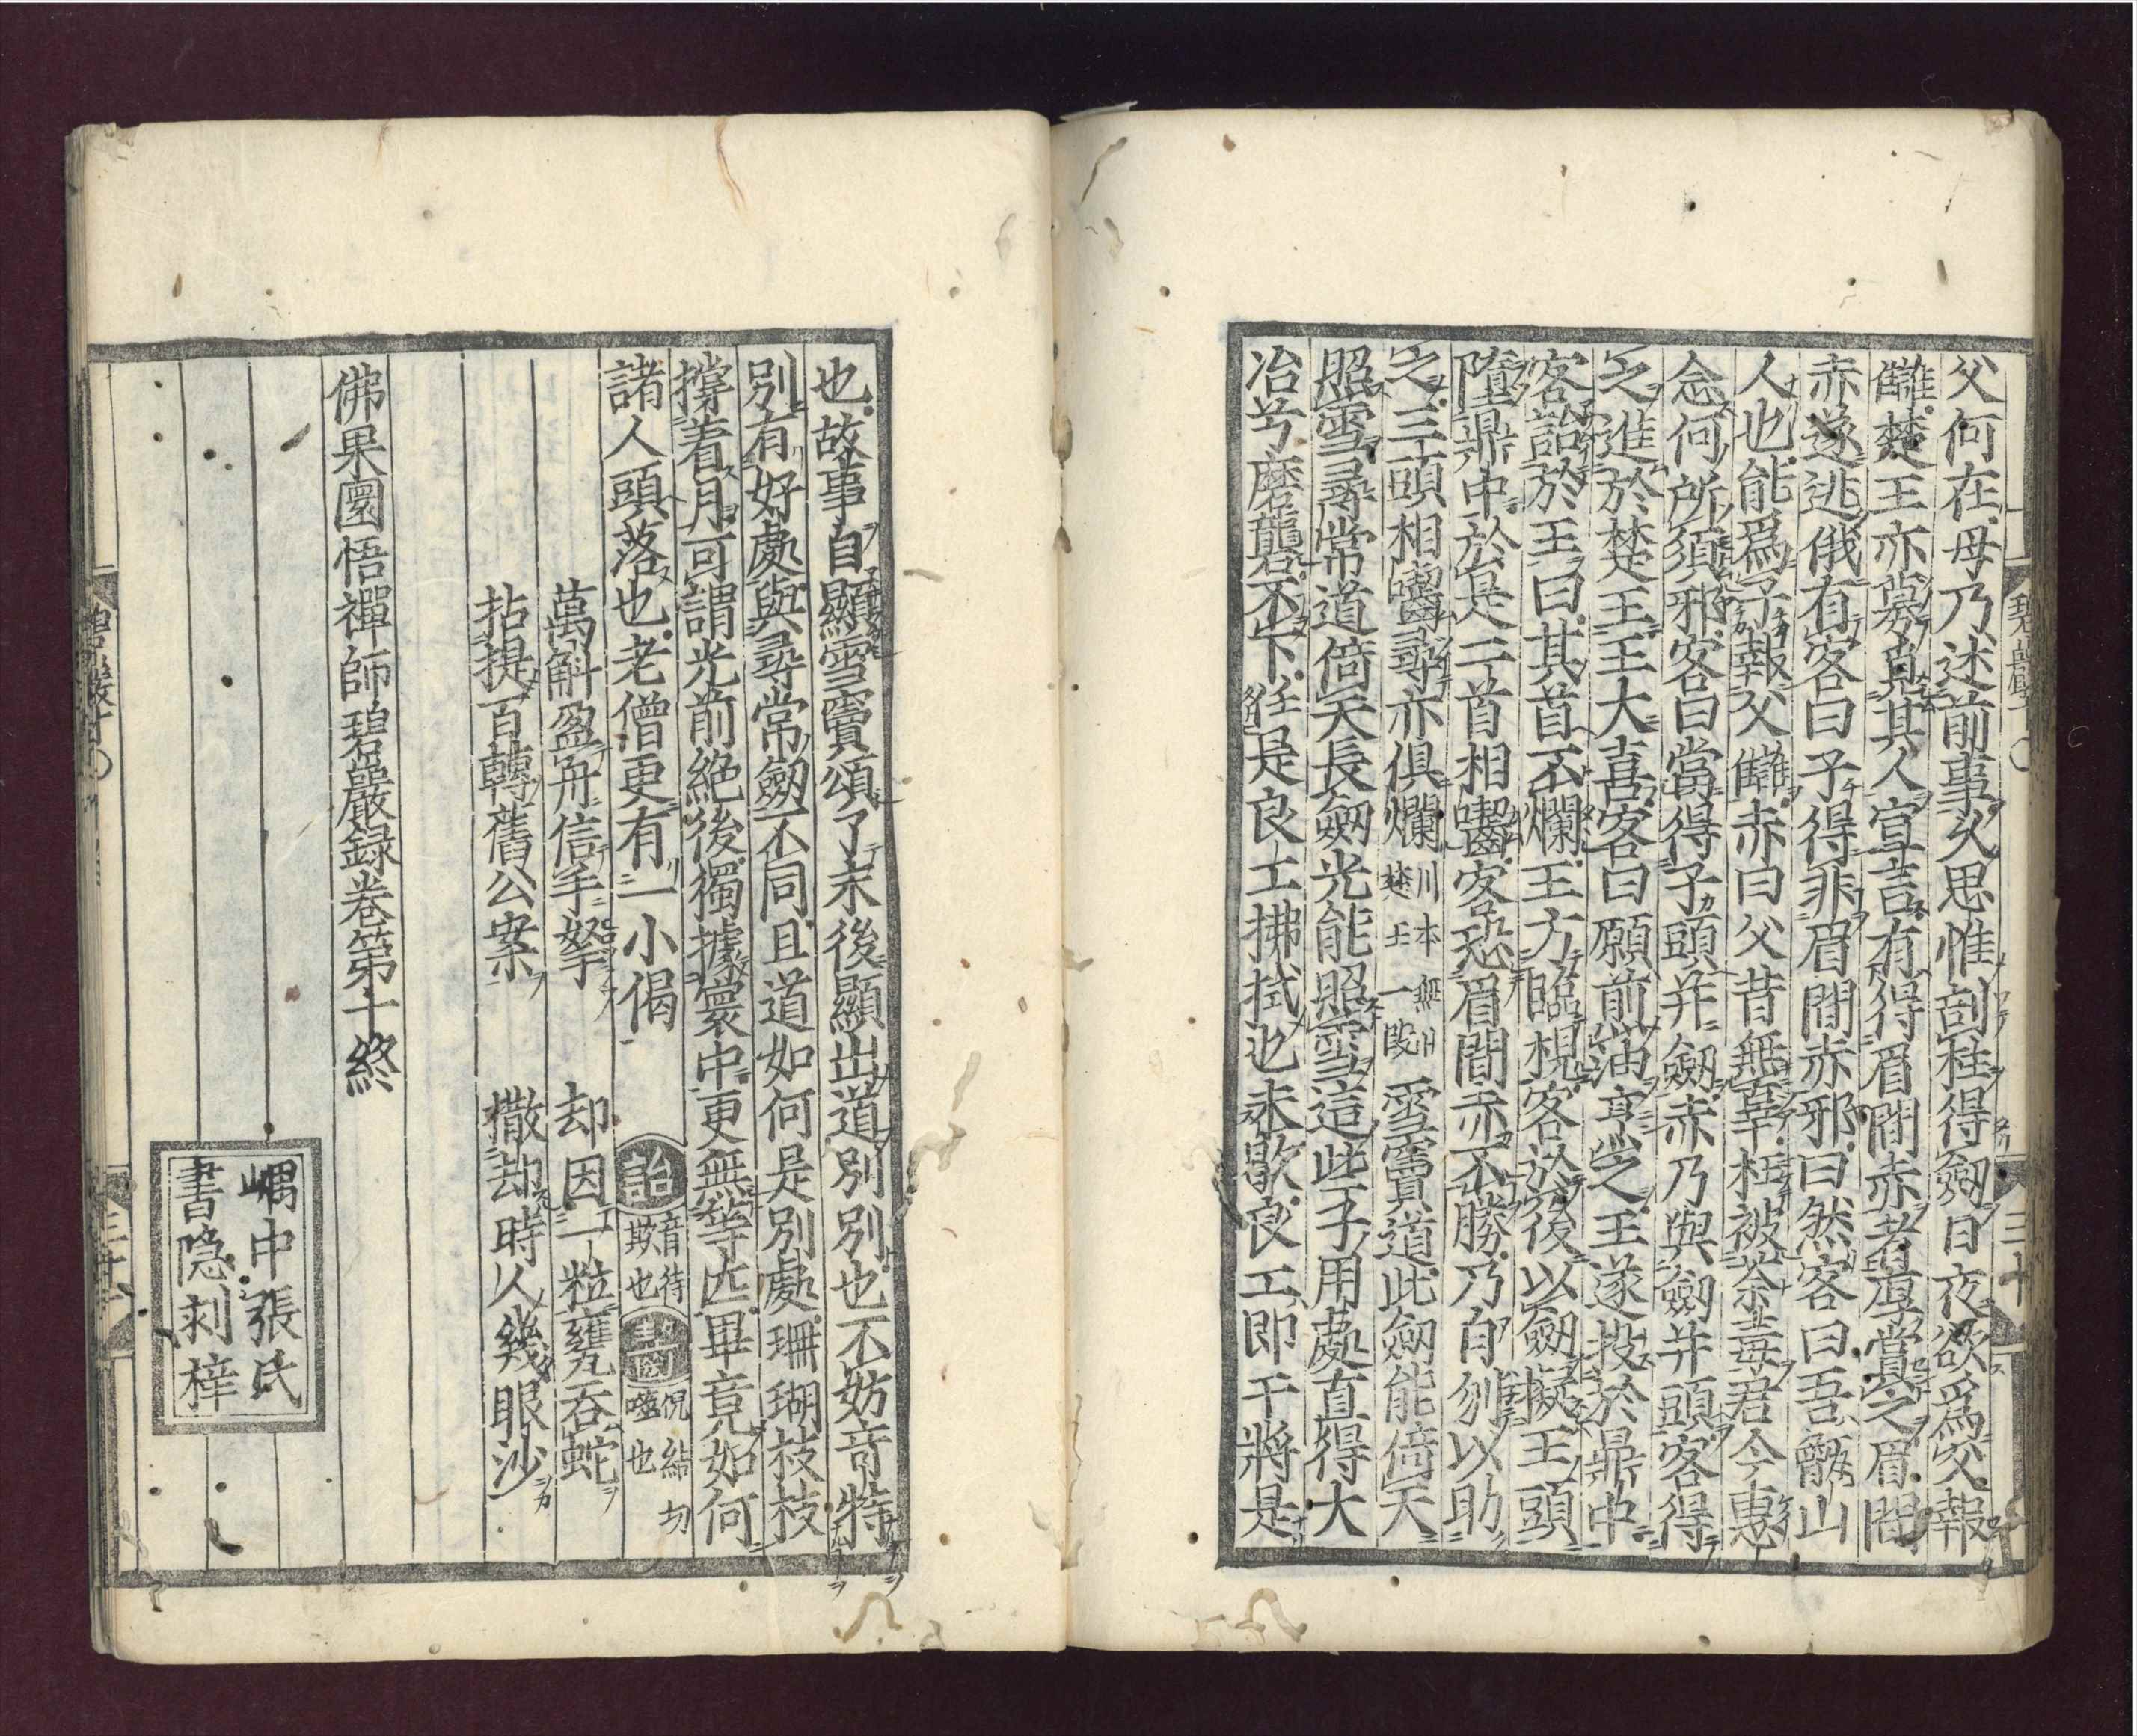 父何在母乃述前事久思惟剖柱得劒日夜欲爲父報
讎楚王亦募覓其人宣言有得眉間赤者厚賞之眉間
赤遂逃俄有客曰子得非眉間赤邪曰然客曰吾甑山
人也能爲子報父讎赤曰父昔無辜枉被荼毒君今惠
念何所須邪客曰當得子頭并劒赤乃與劒并頭客得
之進於楚王王大喜客曰願煎油烹之王遂投於鼎中
客詒於王曰其首不爛王方臨視客於後以劒擬王頭
墮鼎中於是二首相囓客恐眉間赤不勝乃自刎以助
之三頭相囓尋亦俱爛川本無此楚王一段雪竇道此劒能倚天
照雪尋常道倚天長劒光能照雪這些子用處直得大
冶兮磨礱不下任是良工拂拭也未歇良工即干將是
碧巖十〇 三十
也故事自顯雪竇頌了末後顯出道別別也不妨奇特
別有好處與尋常劒不同且道如何是別處珊瑚枝枝
撐着月可謂光前絶後獨據寰中更無等匹畢竟如何
諸人頭落也老僧更有一小偈 詒音待欺也 囓倪結切噬也
萬斛盈舟信手拏 却因一粒甕吞蛇
拈提百轉舊公案 撒却時人幾眼沙
佛果圜悟禪師碧巖録卷第十終
嵎中張氏
書隐刺梓
碧巖十〇